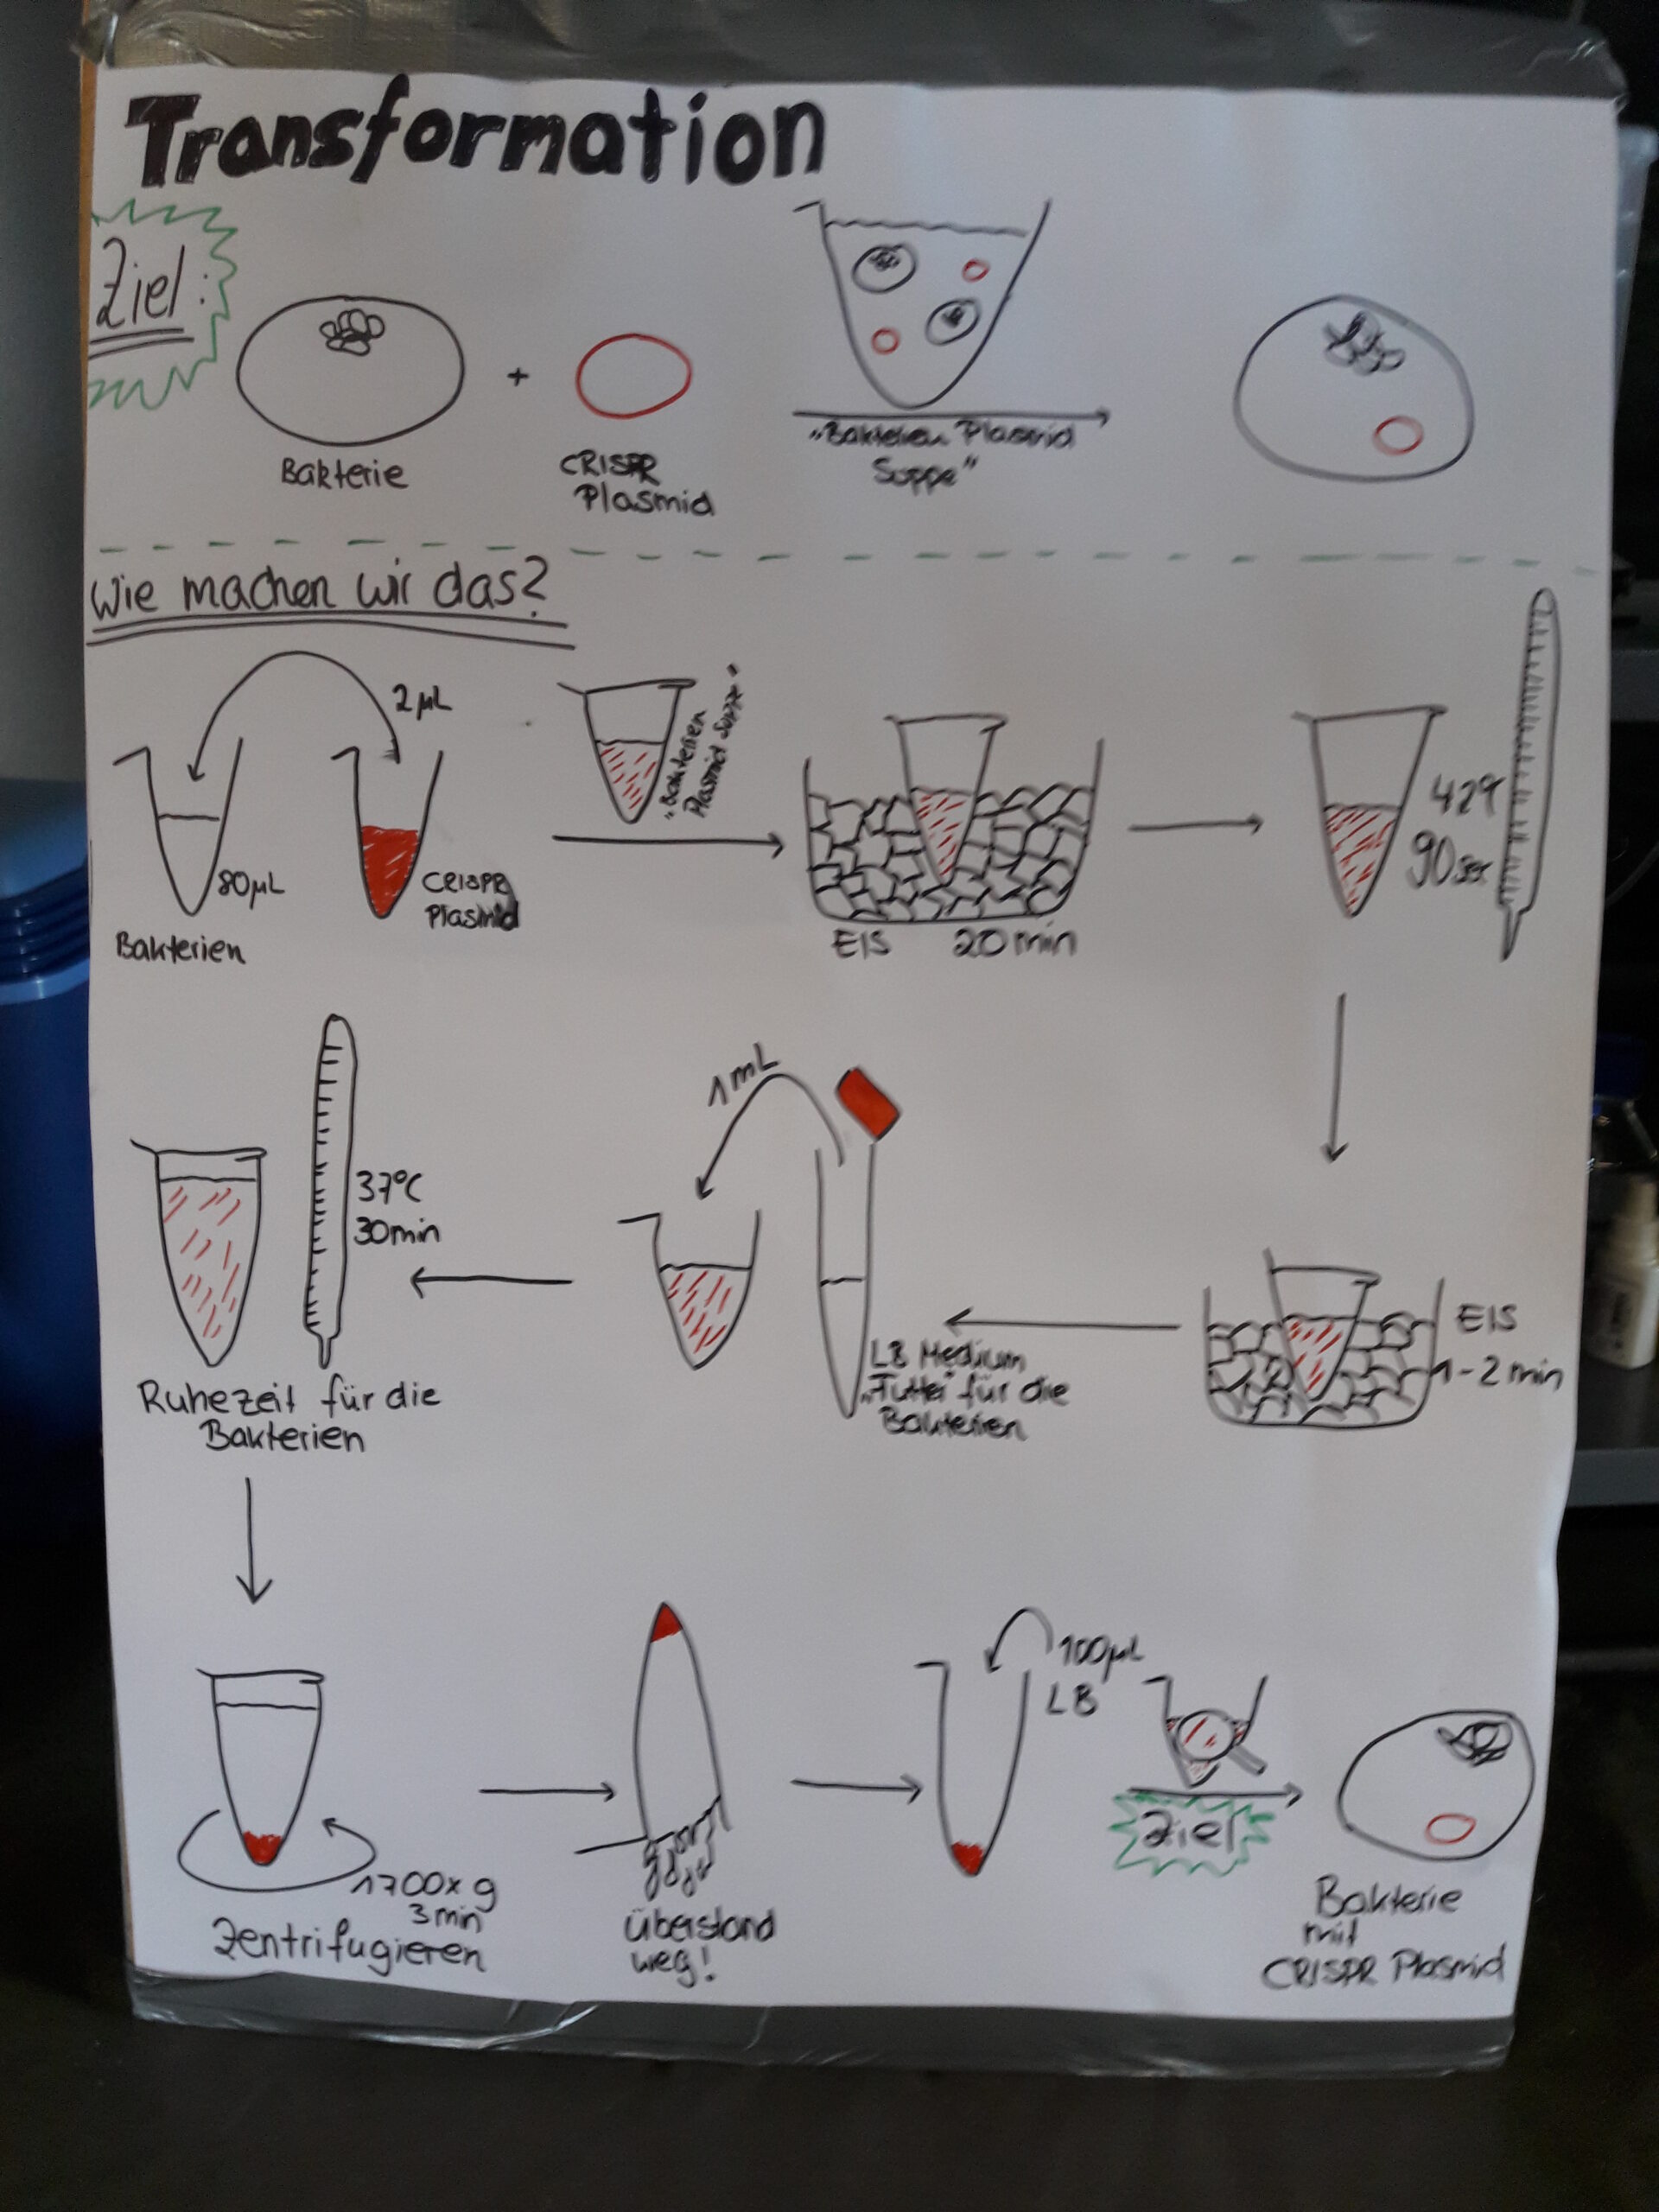 Transformation
Ziel:
Bakterie
+
CRISPR
Plasmid
"Bakterien Plasmid
Suppe"
Wie machen wir das?
2 µL
80 µL
Bakterien
CRISPR
Plasmid
"Bakterien
Plasmid Suppe"
EIS 20 min
42°
90 sec
EIS
1-2 min
1 mL
LB Medium
"Futter" für die
Bakterien
37°C
30 min
Ruhezeit für die
Bakterien
1700 x g
3 min
Zentrifugieren
Überstand
weg!
100 µL
LB
Ziel
Bakterie
mit
CRISPR Plasmid